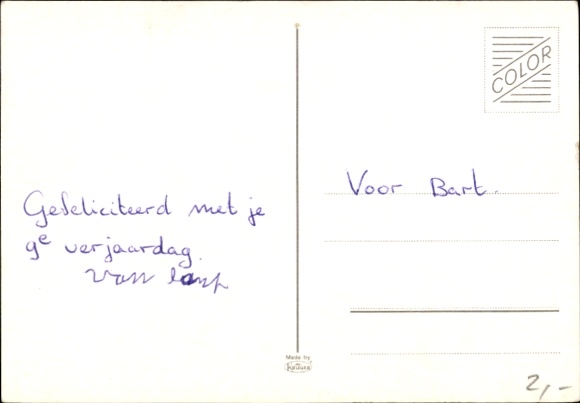 Gefeliciteerd met je
9e verjaardag.
Van
Voor Bart.
COLOR
Made by
2,-